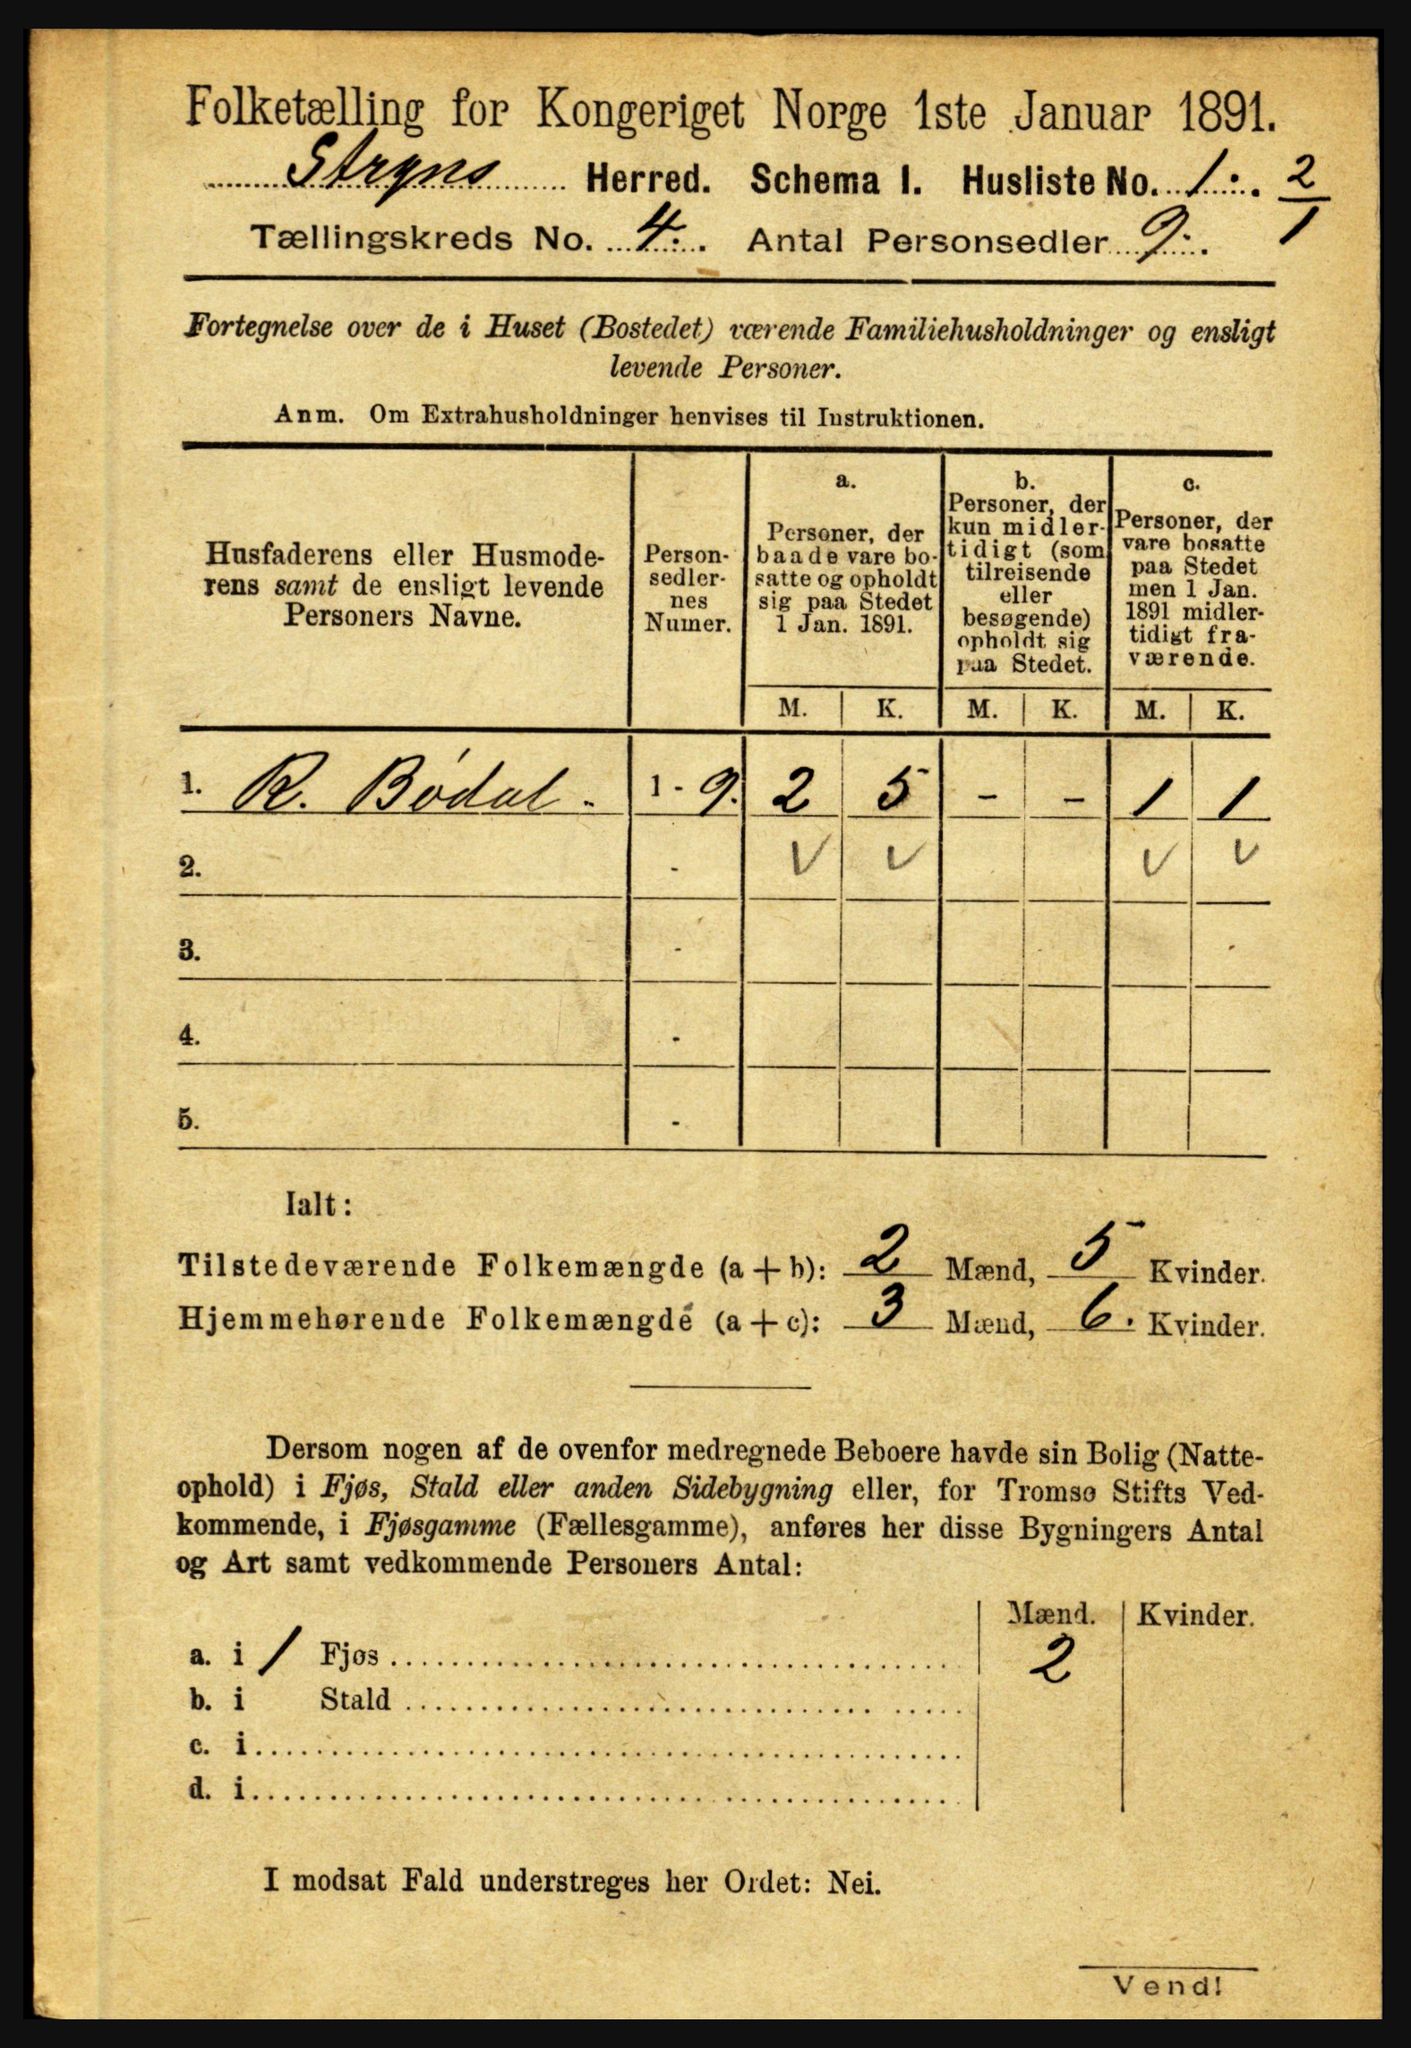 Folketælling for Kongeriget Norge 1ste Januar 1891.
Stryns Herred. Schema I. Husliste No. 1. 2/1
Tællingskreds No. 4. Antal Personsedler 9.
Fortegnelse over de i Huset (Bostedet) værende Familiehusholdninger og ensligt
levende Personer.
Anm. Om Extrahusholdninger henvises til Instruktionen.
Husfaderens eller Husmode-
rens samt de ensligt levende
Personers Navne.
Person-
sedler-
nes
Numer.
a.
Personer, der
baade vare bo-
satte og opholdt
sig paa Stedet
1 Jan. 1891.
b.
Personer, der
kun midler-
tidigt (som
tilreisende
eller
besøgende)
opholdt sig
paa Stedet.
c.
Personer, der
vare bosatte
paa Stedet
men 1 Jan.
1891 midler-
tidigt fra-
værende.
M. K. M. K. M. K.
1. R. Bødal - 1 - 9. 2 5 - - 1 1
2. - V V V V
3. -
4. -
5. -
Ialt:
Tilstedeværende Folkemængde (a + b): 2 Mænd, 5 Kvinder.
Hjemmehørende Folkemængde (a + c): 3 Mænd, 6. Kvinder.
Dersom nogen af de ovenfor medregnede Beboere havde sin Bolig (Natte-
ophold) i Fjøs, Stald eller anden Sidebygning eller, for Tromsø Stifts Ved-
kommende, i Fjøsgamme (Fællesgamme), anføres her disse Bygningers Antal
og Art samt vedkommende Personers Antal:
Mænd. Kvinder.
a. i 1 Fjøs 2
b. i Stald
c. i
d. i
I modsat Fald understreges her Ordet: Nei.
Vend!